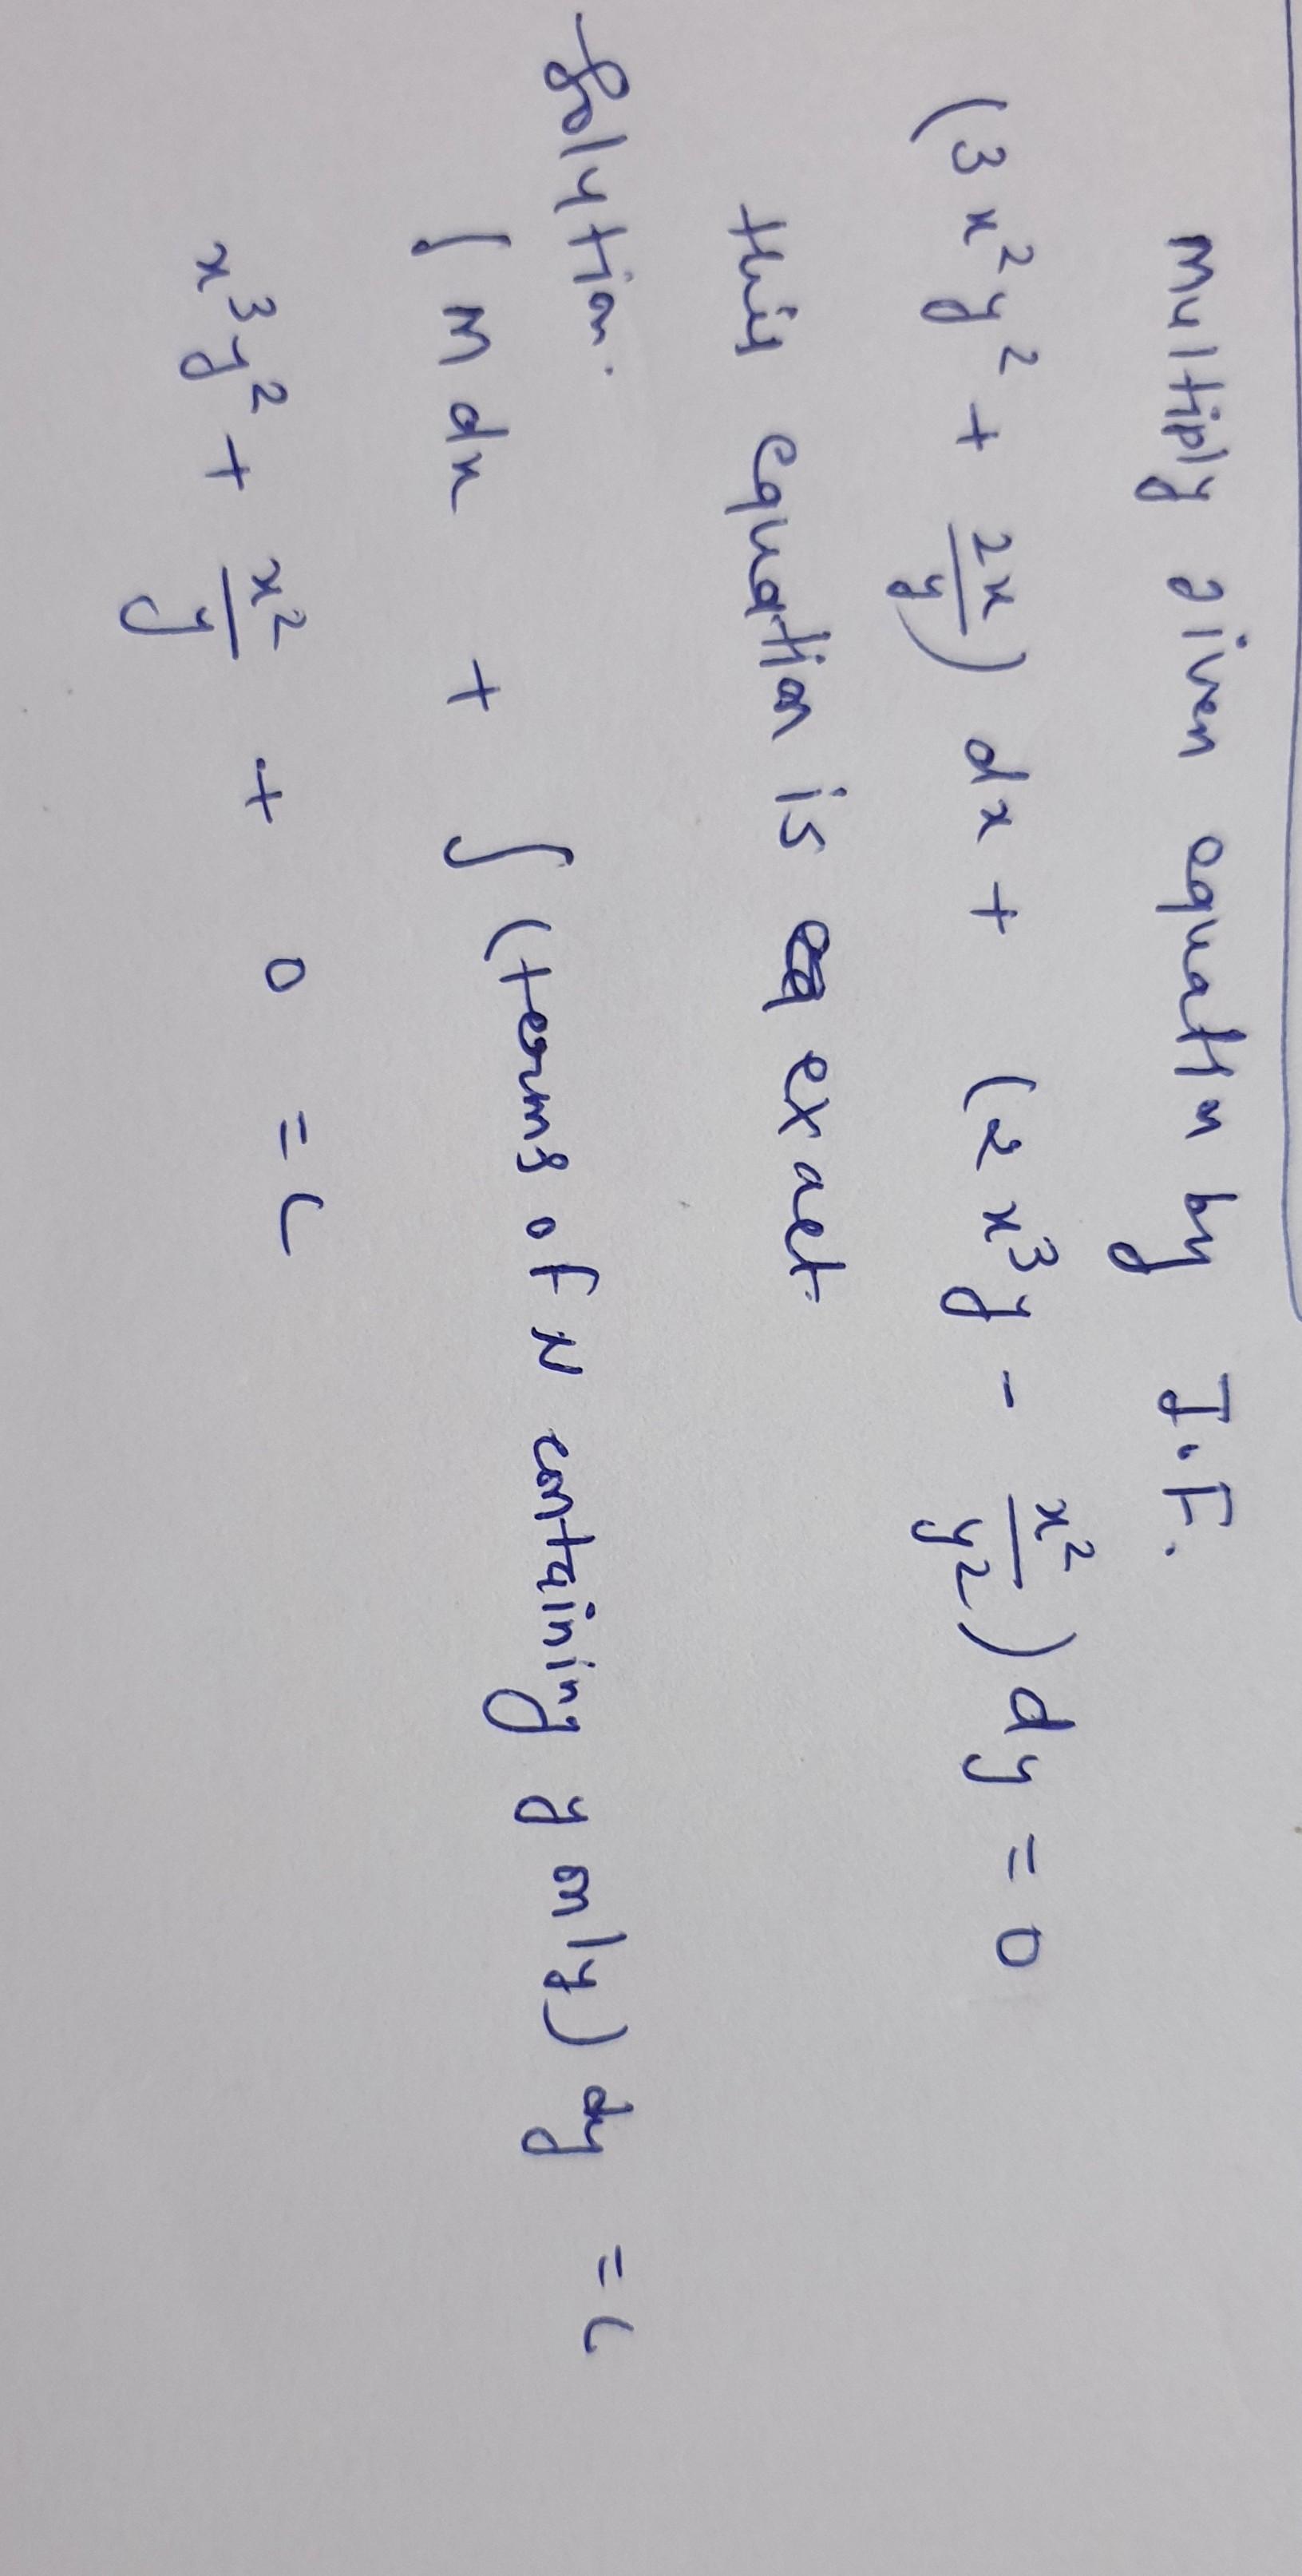 multiply given equation by I.F.
(3x²y² + 2x/y) dx + (2x³y - x²/y²) dy = 0
this equation is exact.
Solution.
∫ M dx + ∫ (terms of N containing y only) dy = C
x³y² + x²/y + 0 = C